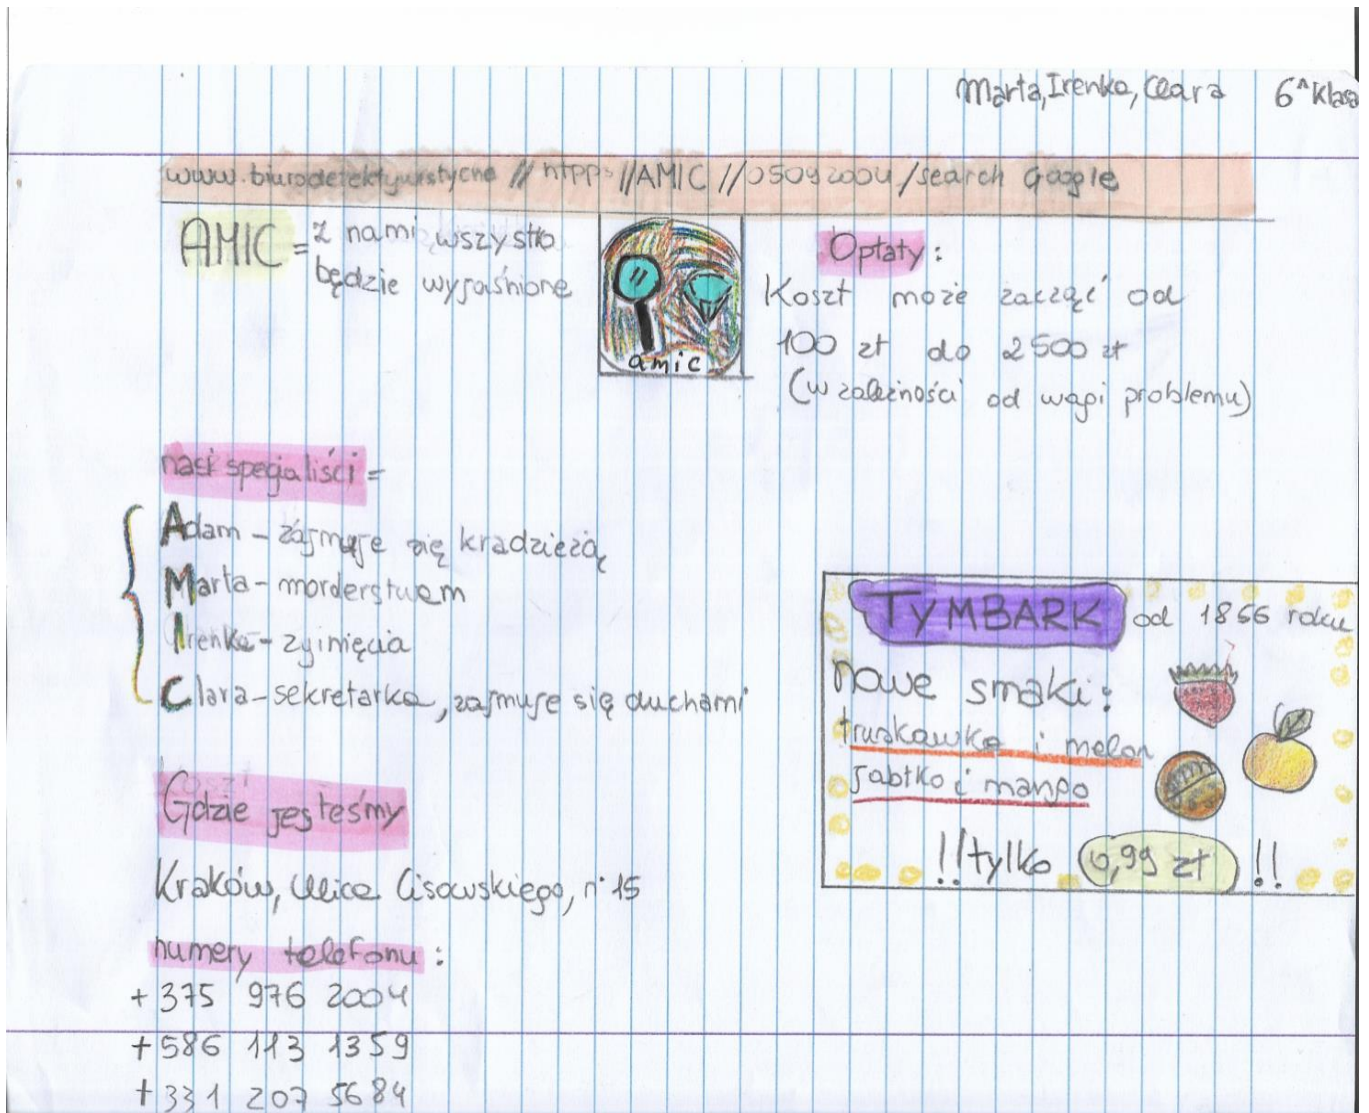 Marta, Irenka, Clara 6^A klasa
www.biurodetektywistyczne // htpp://AMIC //05092004/search Google
AMIC = z nami wszystko
będzie wyjaśnione
amic
Opłaty:
Koszt może zacząć od
100 zł do 2500 zł
(w zależności od wagi problemu)
nasi specjaliści =
Adam - zajmuje się kradzieżą
Marta - morderstwem
Irenka - zginięcia
Clara - sekretarka, zajmuje się duchami
Gdzie jesteśmy
Kraków, ulica Cisowskiego, n°15
numery telefonu:
+375 976 2004
+586 113 1359
+331 207 5684
TYMBARK od 1866 roku
nowe smaki:
truskawka i melon
jabłko i mango
!!tylko 0,99 zł !!